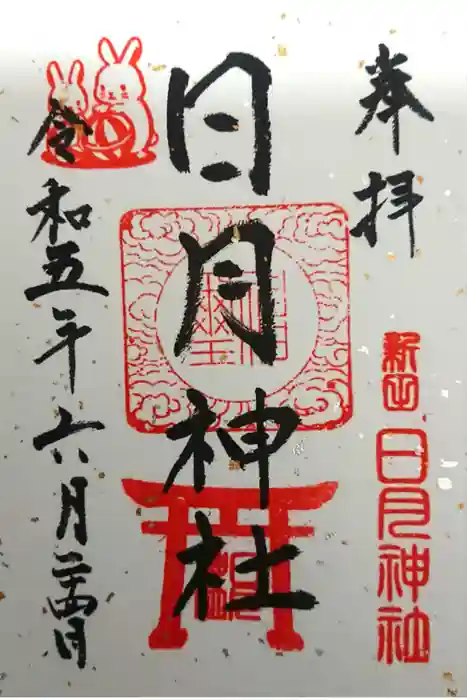 奉拝
日月神社
新田
日月神社
令和五年六月二十四日